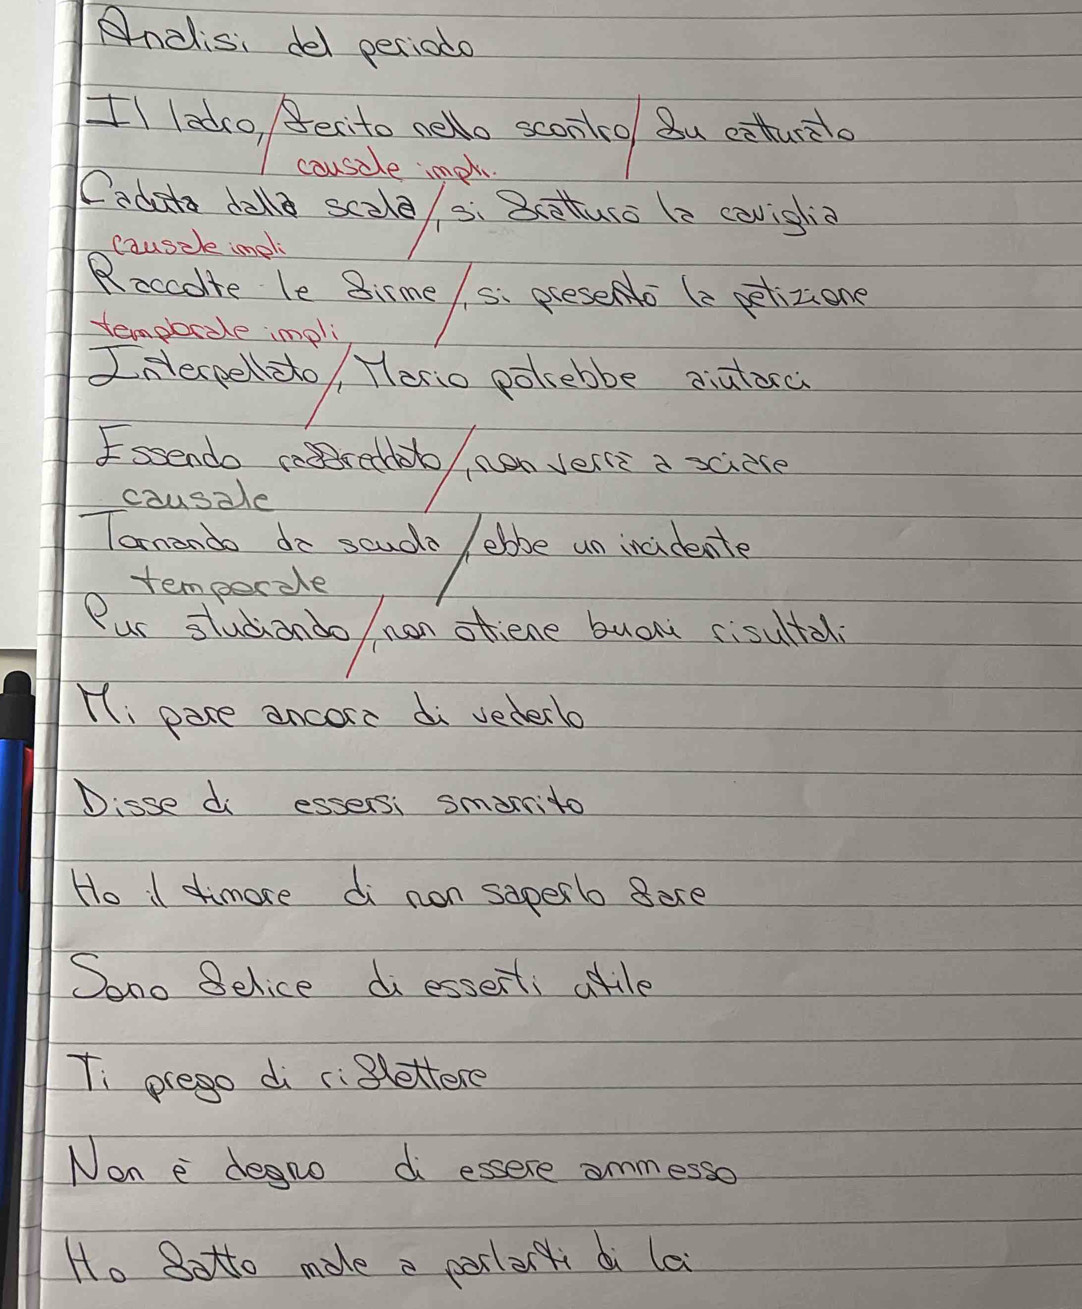 Analisi del periodo
Il ladro,/ferito nello scontro/fu catturato
causale impli.
Caduta dalle scale/, si fratturò la caviglia
causale impli
Raccolte le firme/, si presentò la petizione
temporale impli
Interpellato/, Mario potrebbe aiutarci
Essendo raffreddato/, non verrà a sciare
causale
Tornando da scuola/, ebbe un incidente
temporale
Pur studiando/, non ottiene buoni risultati
Mi pare ancora di vederlo
Disse di essersi smarrito
Ho il timore di non saperlo fare
Sono felice di esserti utile
Ti prego di riflettere
Non è degno di essere ammesso
Ho fatto male a parlarti di lei